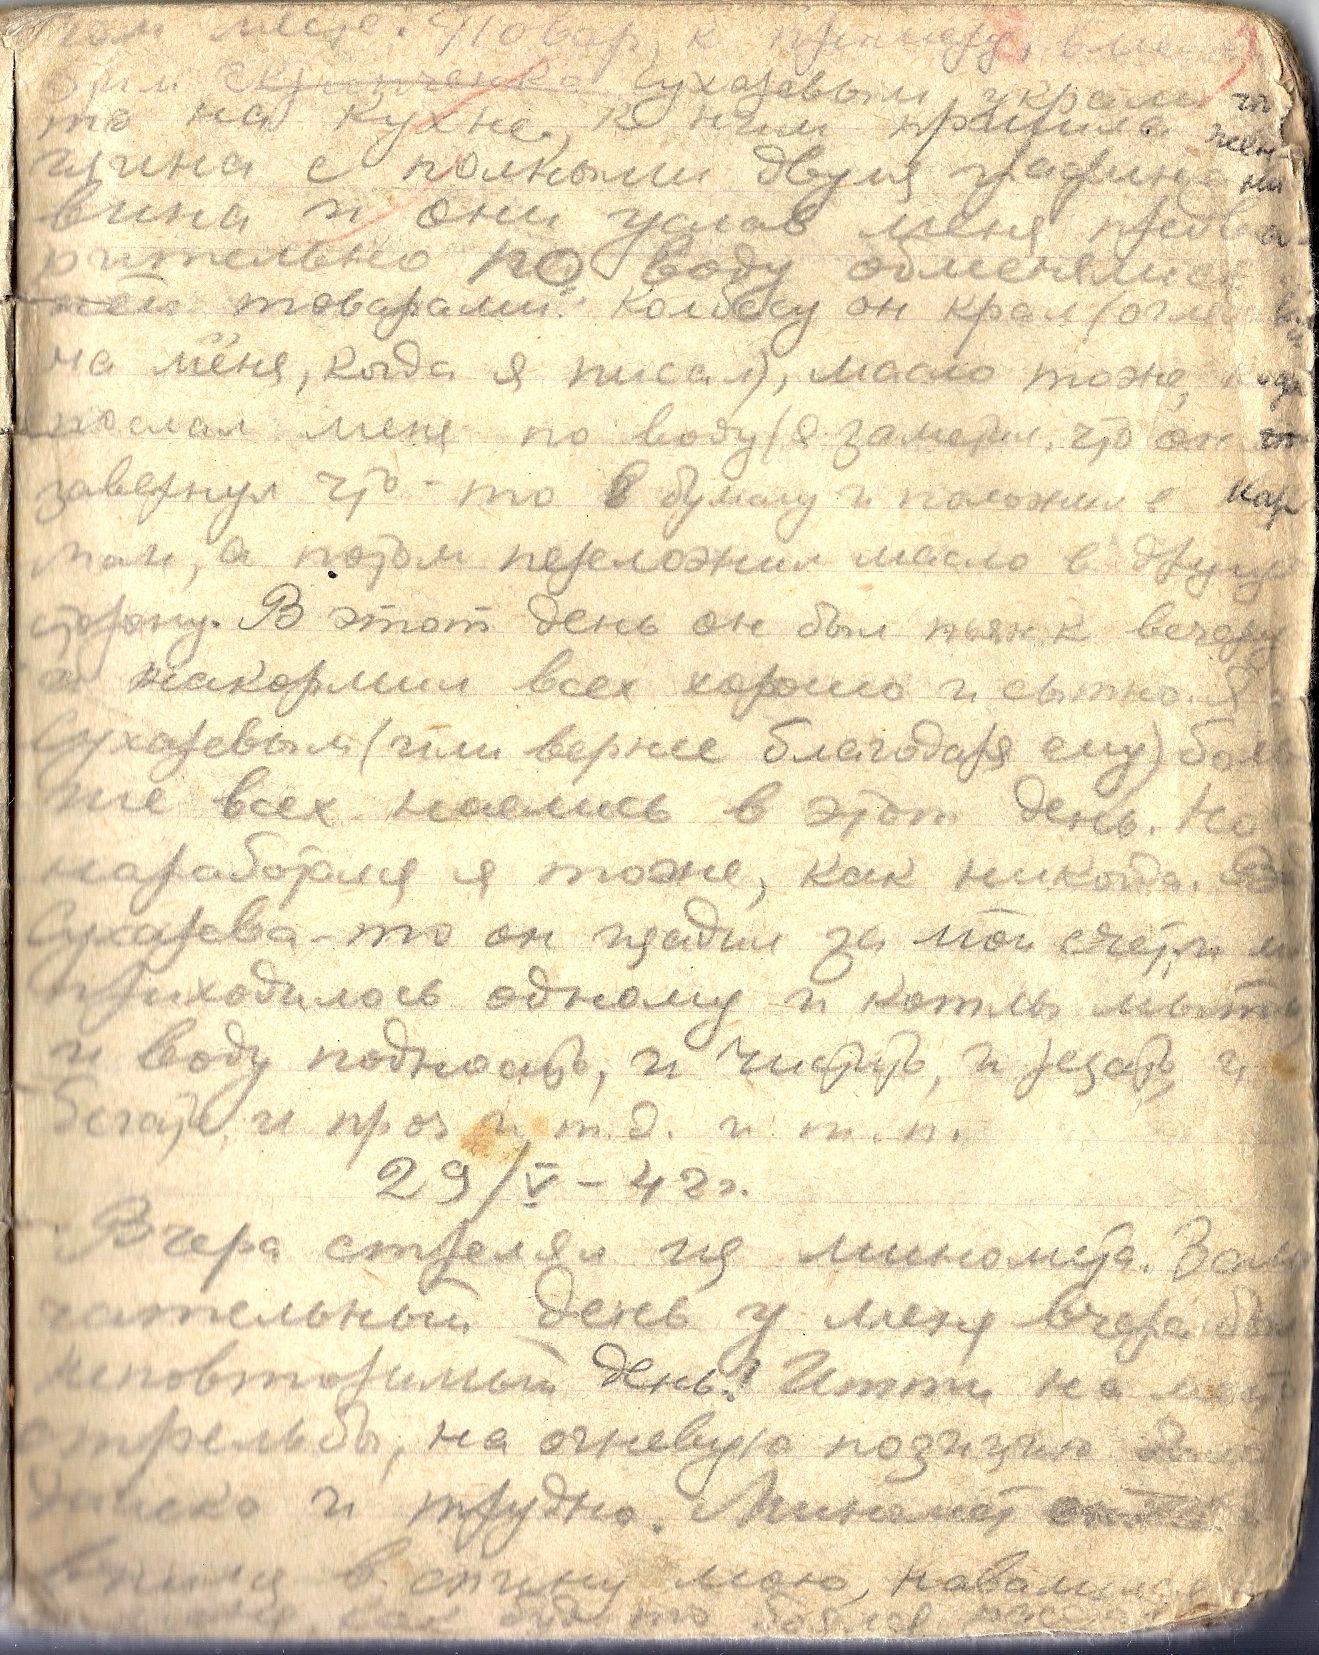 том месте. Повар, к примеру, вме
эрим Скрыпченко Сухаревым украли что
то на кухне, к ним пришла жен-
щина с полными двумя графинами
вина и они услав меня предва-
рительно по воду обменялись с
ней товарами. Колбасу он крал (огля
на меня, когда я писал), масло тоже, когда
послал меня по воду (я заметил, что он что
завернул что-то в бумагу и положил в кар
ман, а потом переложил масло в другую
сторону. В этот день он был пьян к вечеру
а накормил всех хорошо и сытно. Я с
Сухаревым (или вернее благодаря ему) боль
ше всех наелись в этот день. Но
наработался я тоже, как никогда.
Сухарева-то он щадил за мой счет, и мне
приходилось одному и котлы мыть
и воду подносить, и чистить, и резать, и
бегать и проч и т.д. и т.п.
29/V – 42 г.
Вчера стрелял из миномёта. Заме
чательный день у меня вчера был
неповторимый день! Итти на место
стрельбы, на огневую позицию было
далеко и трудно. Миномёт
в спину мою, навалился
как будто боялся